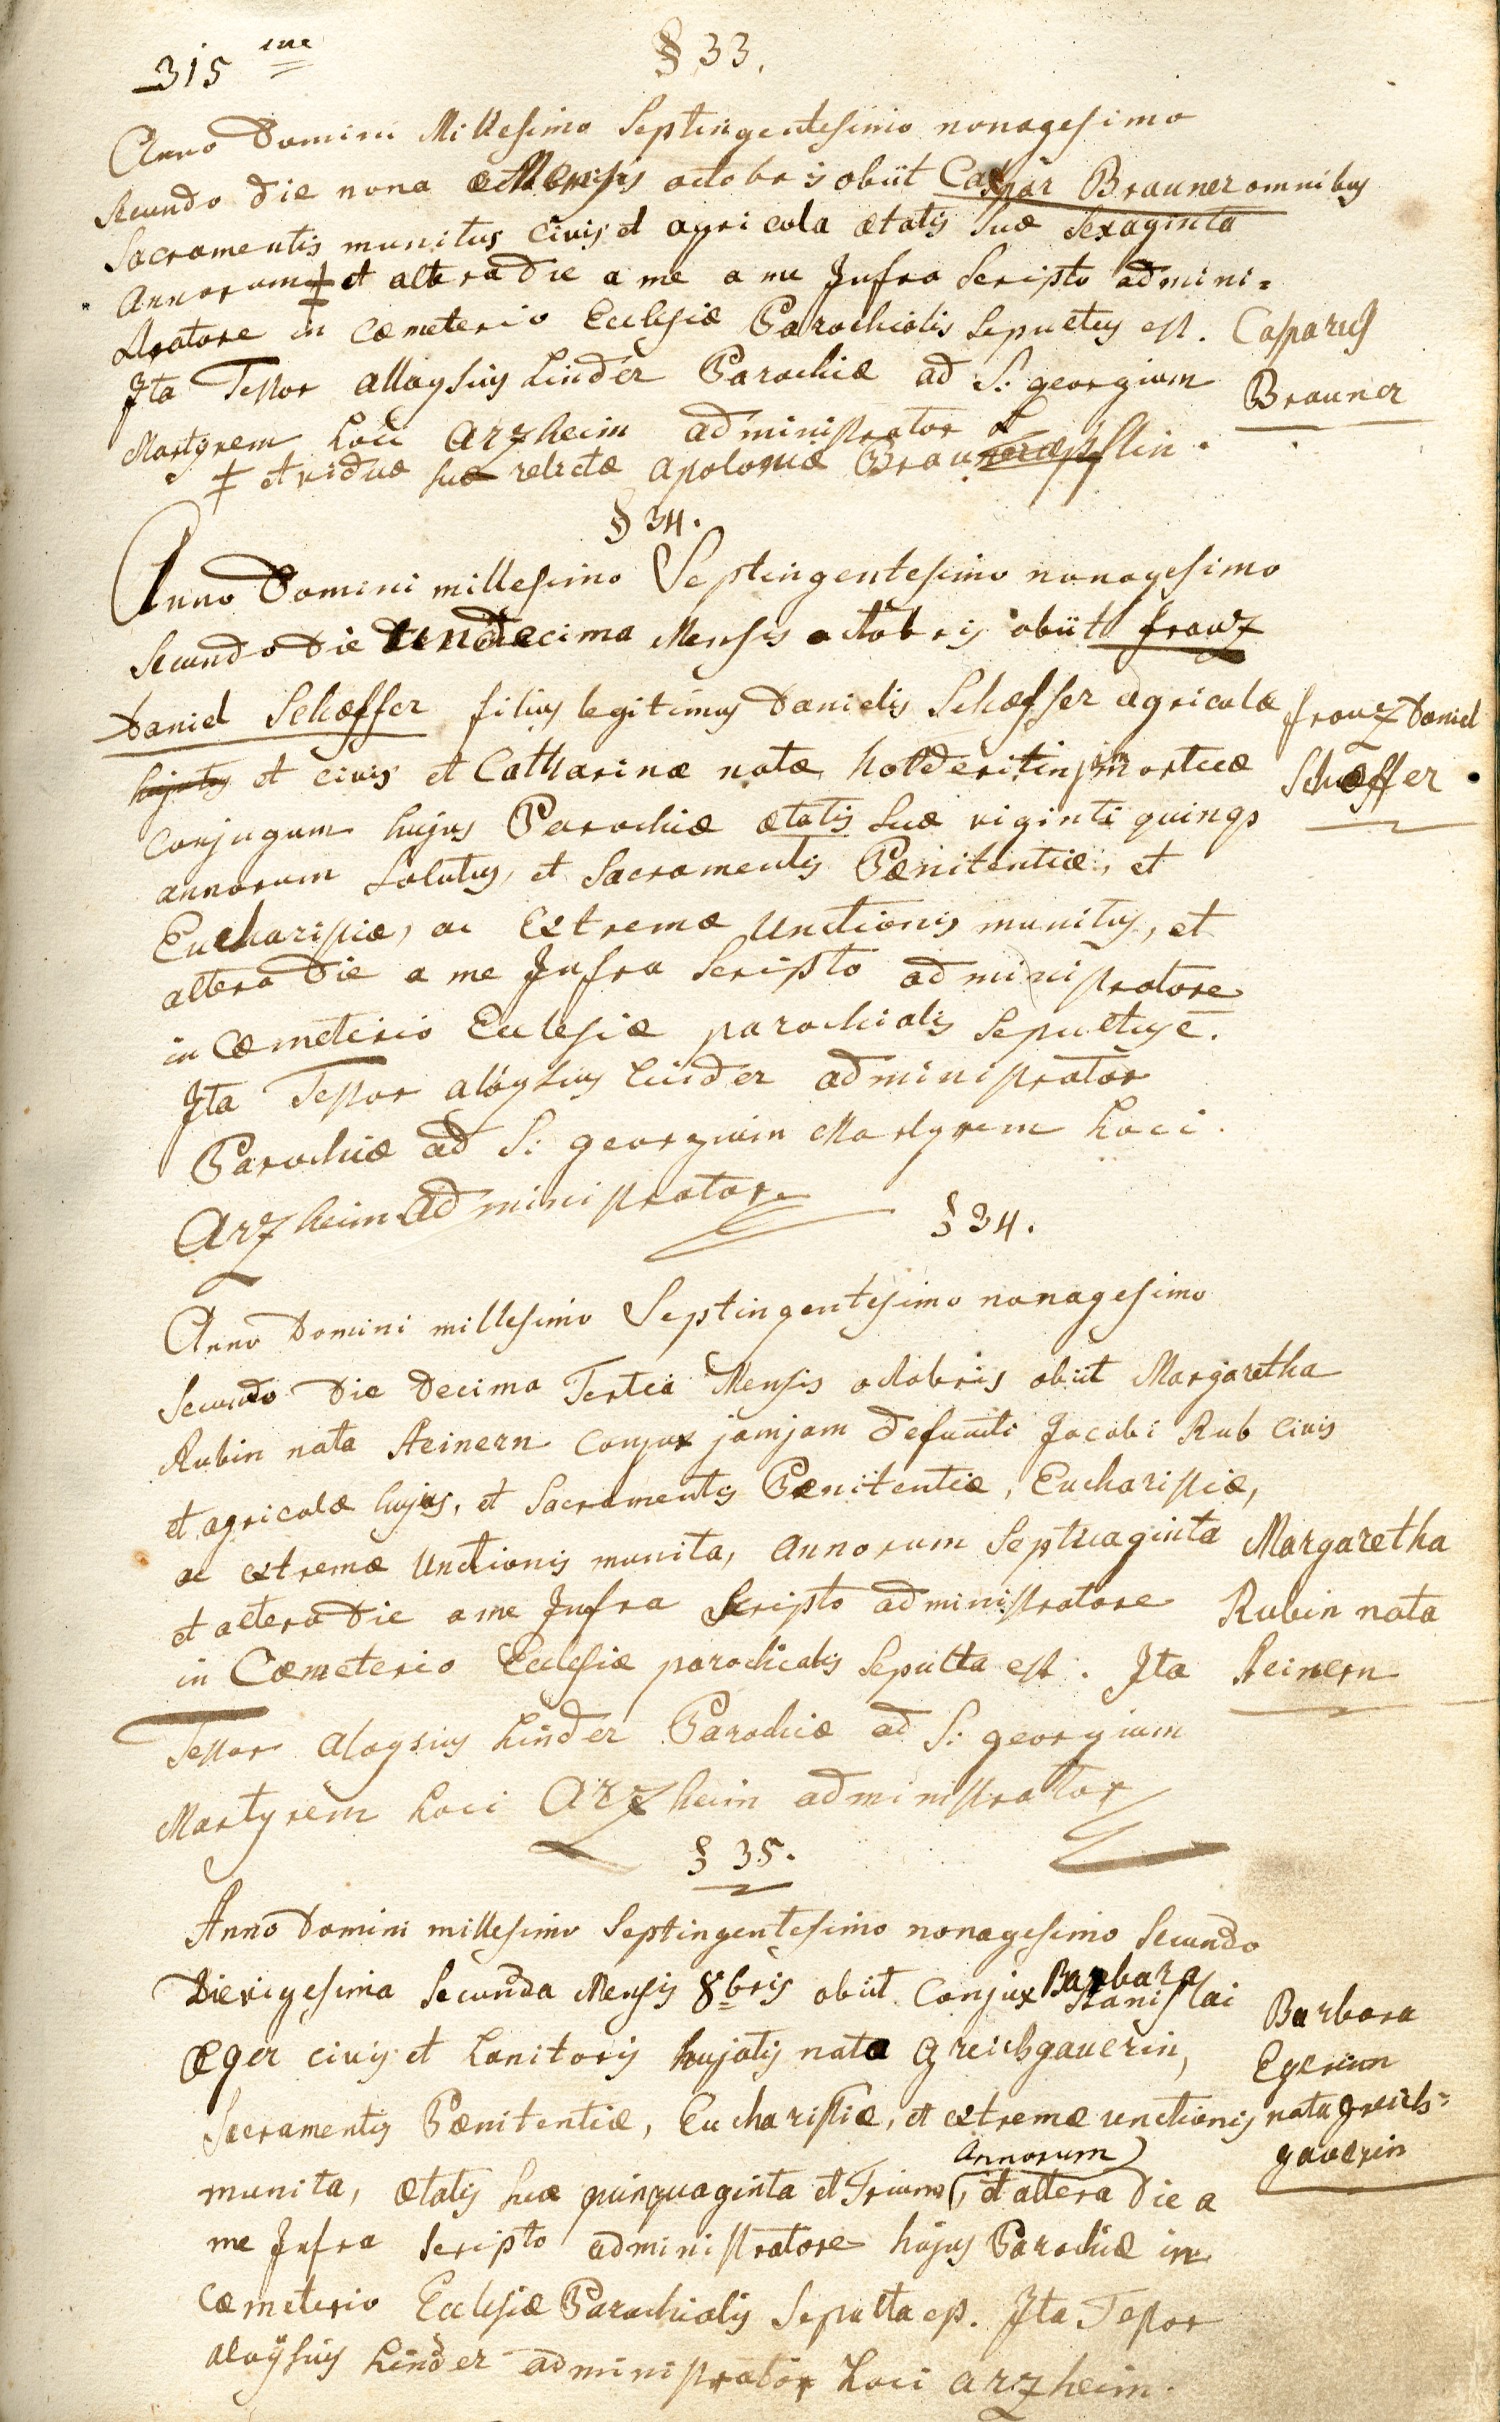 315 me
§ 33.
Anno Domini Millesimo Septingentesimo nonagesimo
Secundo Die nona Mensis octobris obiit Caspar Brauner omnibus
Sacramentis munitus civis et agricola ætatis suæ sexaginta
Annorum ‡ et altera Die a me a me Infra Scripto admini=
stratore in Cæmeterio Ecclesiæ Parochialis Sepultus est.
Ita Testor alloysius Linder Parochiæ ad S: georgium
Martyrem Loci Arzheim administrator
‡ et viduæ suæ relictæ apoloniæ Brau
Casparus
Brauner
§ 34.
Anno Domini millesimo Septingentesimo nonagesimo
Secundo Die undecima Mensis octobris obiit franz
Daniel Schæffer filius legitimus Danielis Schæffer agricolæ
hujatis et civis et Catharinæ natæ mortuæ
Conjugum hujus Parochiæ ætatis suæ viginti quinqs
annorum Solutus, et Sacramentis Pænitentiæ, et
Eucharistiæ, ac Extremæ Unctionis munitus, et
altera Die a me Infra Scripto administratore
in Cæmeterio Ecclesiæ parochialis Sepultus ē.
Ita Testor aloysius Linder administrator
Parochiæ ad S: georgium Martyrem Loci
Arzheim administratore
franz Daniel
Schæffer
§ 34.
Anno Domini millesimo Septingentesimo nonagesimo
Secundo Die Decima Tertia Mensis octobris obiit Margaretha
Rubin nata Reinern Conjux jamjam defuncti Jacobi Rub Civis
et agricolæ hujus, et Sacramentis Pænitentiæ, Eucharistiæ,
ac extremæ Unctionis munita, annorum Septuaginta
et altera Die a me Infra Scripto administratore
in Cæmeterio Ecclesiæ parochialis Sepulta est. Ita
Testor aloysius Linder Parochiæ ad S: georgium
Martyrem Loci Arzheim administrator
Margaretha
Rubin nata
Reinern
§ 35.
Anno Domini millesimo Septingentesimo nonagesimo Secundo
Die vigesima Secunda Mensis 8bris obiit Conjux Barbara Stanislai
æger civis et Lanitoris hujatis nata greichgauerin,
Sacramentis Pænitentiæ, Eucharistiæ, et extremæ unctionis
munita, ætatis suæ quinquaginta et Trium annorum, et altera Die a
me Infra Scripto administratore hujus Parochiæ in
Cæmeterio Ecclesiæ Parochialis Sepulta est. Ita Testor
aloÿsius Linder administrator Loci arzheim.
Barbara
Egerinn
nata greich=
gauerin